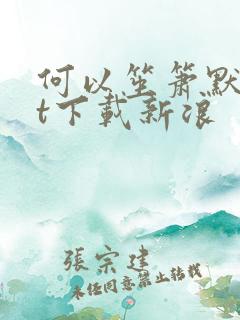 何以笙箫默
t下載新浪
張宗建
未经同意禁止转载